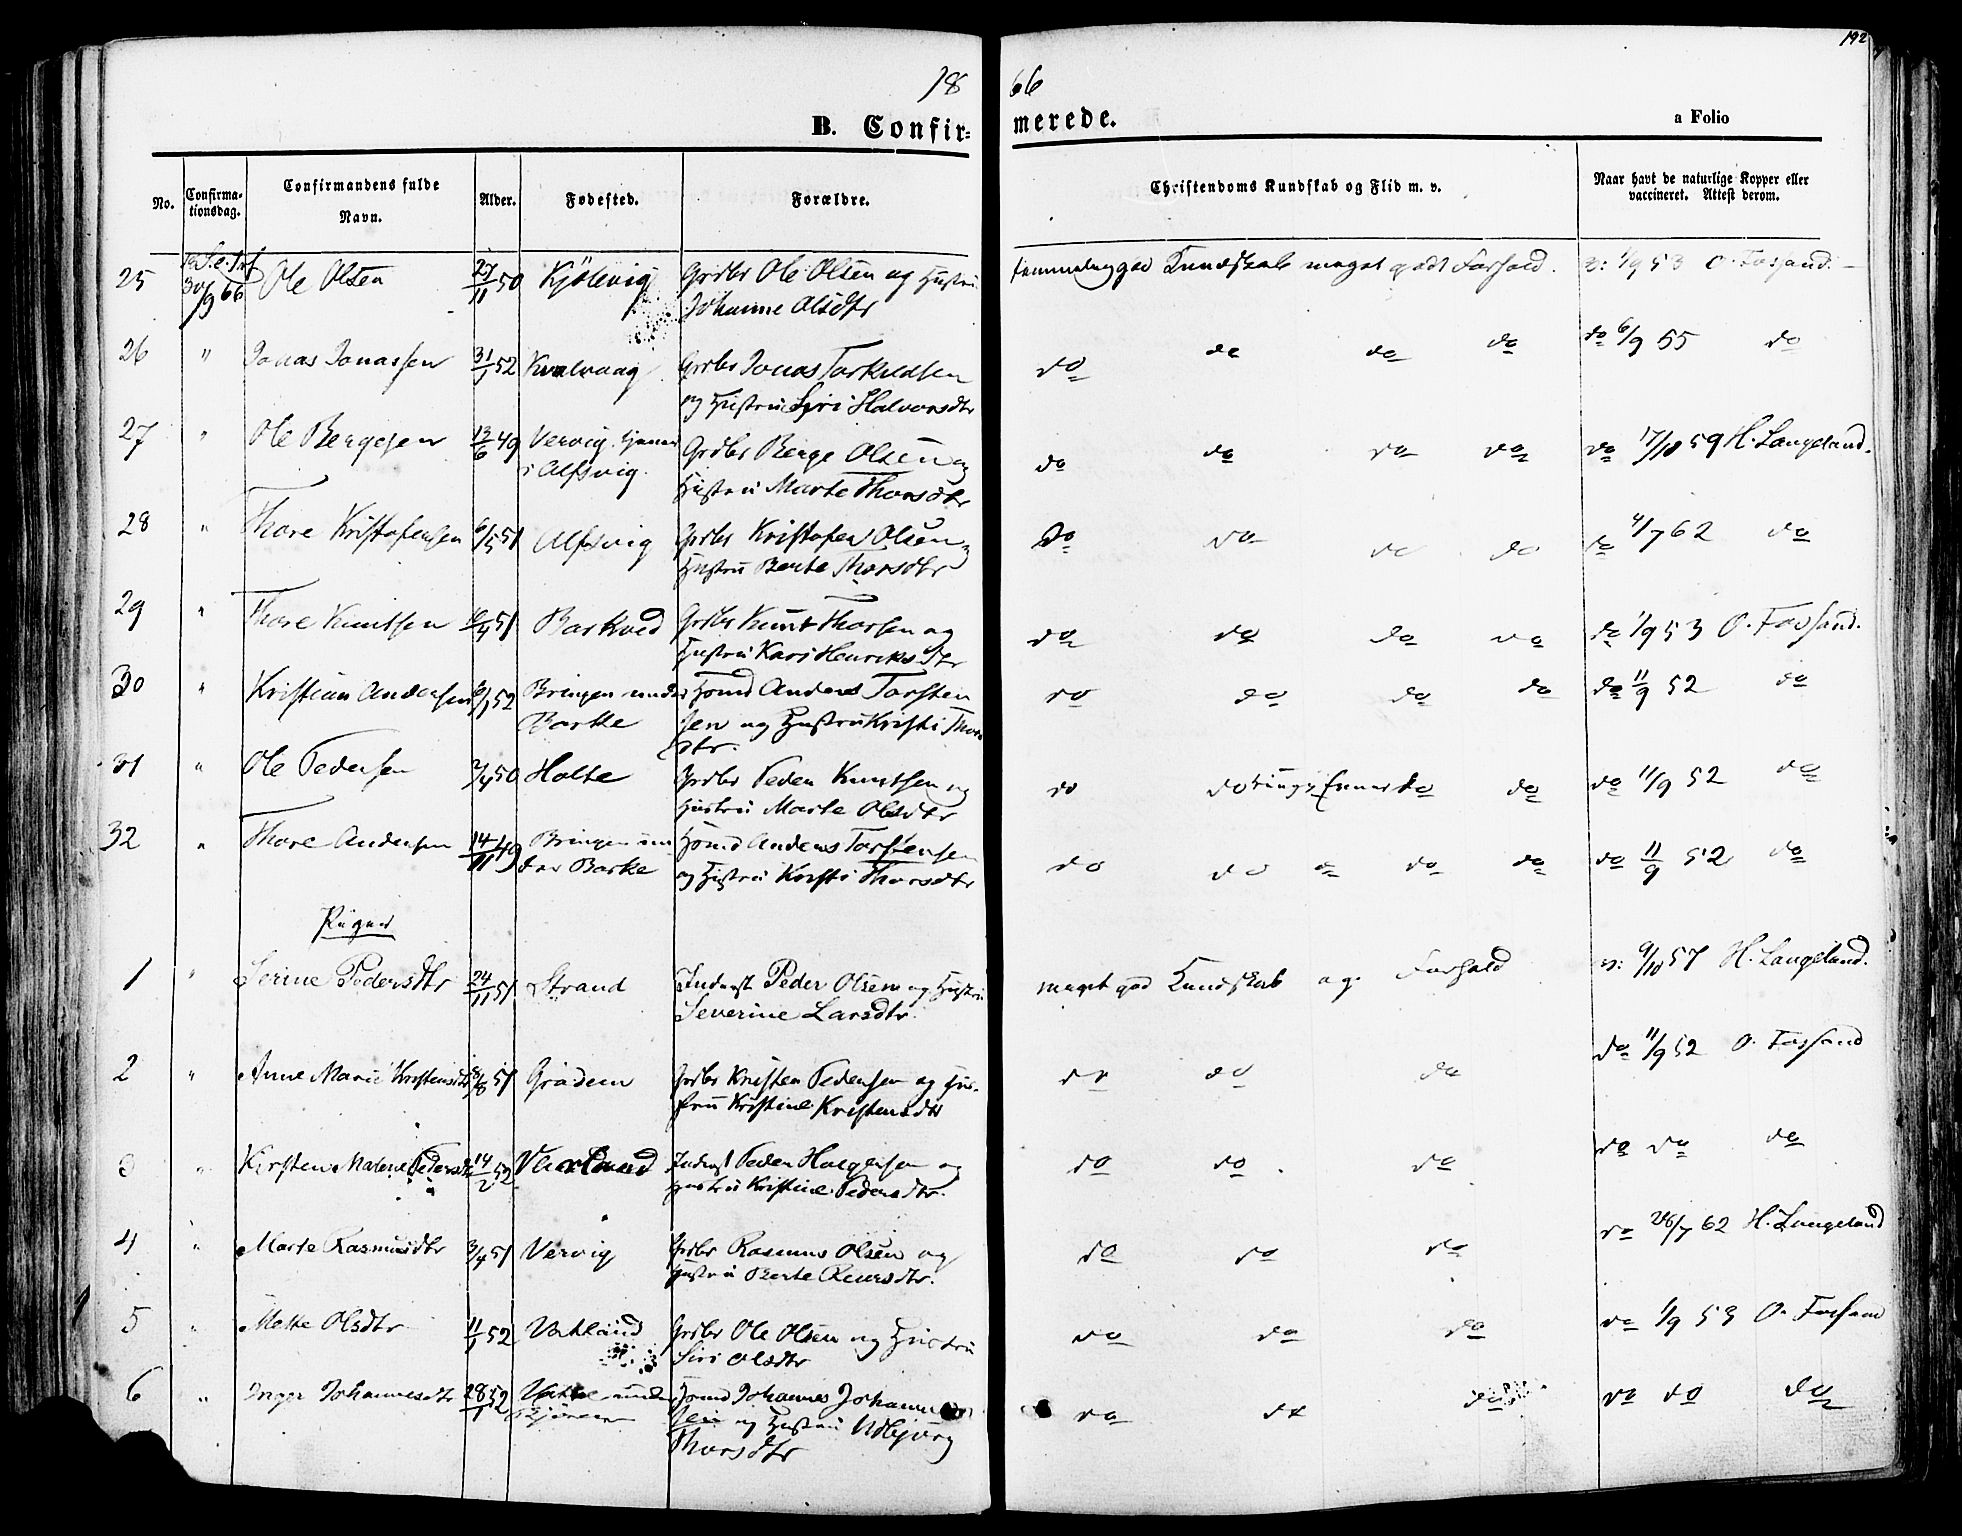 192
18 66
B. Confir= merede.
a Folio
No. Confirma-tionsdag. Confirmandens fulde Navn. Alder. Fødested. Forældre. Christendoms Kundskab og Flid m. v. Naar havt de naturlige Kopper eller vaccineret. Attest derom.
25 30/9 66 Ole Olsen 27/11 50 Kjölevig Grdbr Ole Olsen og Hustru Kundskab meget godt Forhold. v: 1/9 53 O. Fossand.
Johanne Olsdtr
26 " Jonas Jonassen 31/1 52 Kvalvaag Grdbr Jonas Torkildsen do do do do do 6/9 55 do
og Hustru Siri Halvorsdtr
27 " Ole Bergesen 13/6 49 Vervig. tjener Grdbr Berge Olsen og do do do do do 17/10 59 H. Langeland.
i Alfsvig. Hustru Marte Thorsdtr
28 " Thore Kristofersen 6/5 51 Alfsvig Grdbr Kristofer Olsen og do do do do do 4/7 62 do
Hustru Berte Thorsdtr
29 " Thore Knutsen 10/4 51 Barkved Grdbr Knut Thorsen og do do do do do 1/9 53 O. Fossand.
Hustru Kari Henriksdtr
30 " Kristian Andersen 6/1 52 Bringen under Huusmd Anders Torsten do do do do do 11/9 52 do
Barke sen og Hustru Kristi Thors
dtr.
31 " Ole Pedersen 2/4 50 Holte Grdbr Peder Knutsen og do do do do do 11/9 52 do
Hustru Marte Olsdtr
32 " Thore Andersen 14/11 49 Bringen un Huusmd Anders Torstensen do do do do do 11/9 52 do
der Barke og Hustru Kristi Thorsdtr
Piger
1 " Serine Pedersdtr 24/11 51 Strand Inderst Peder Olsen og Hustru meget god Kundskab og Forhold v: 9/10 57 H. Langeland.
Severine Larsdtr.
2 " Anne Marie Kristensdtr 18/8 51 Grödem Grdbr Kristen Pedersen og Hus- do do do do 11/9 52 O. Fossand
tru Kristine Kristensdtr
3 " Kirsten Malene Pedersdtr 14/2 52 Inderst Peder Holgersen og do do do do do do
Hustru Kristine Pedersdtr.
4 " Marte Rasmusdtr 3/4 51 Vervig Grdbr Rasmus Olsen og do do do do 26/7 62 H. Langeland
Hustru Berte
5 " Mette Olsdtr 11/1 52 Vatland Grdbr Ole Olsen og Hustru do do do do 1/9 53 O. Fossand
Siri Olsdtr
6 " Inger Johannesdtr 28/1 52 under Huusmd Johannes Johannes do do do do do do
sen og Hustru Udbjörg
Thorsdtr